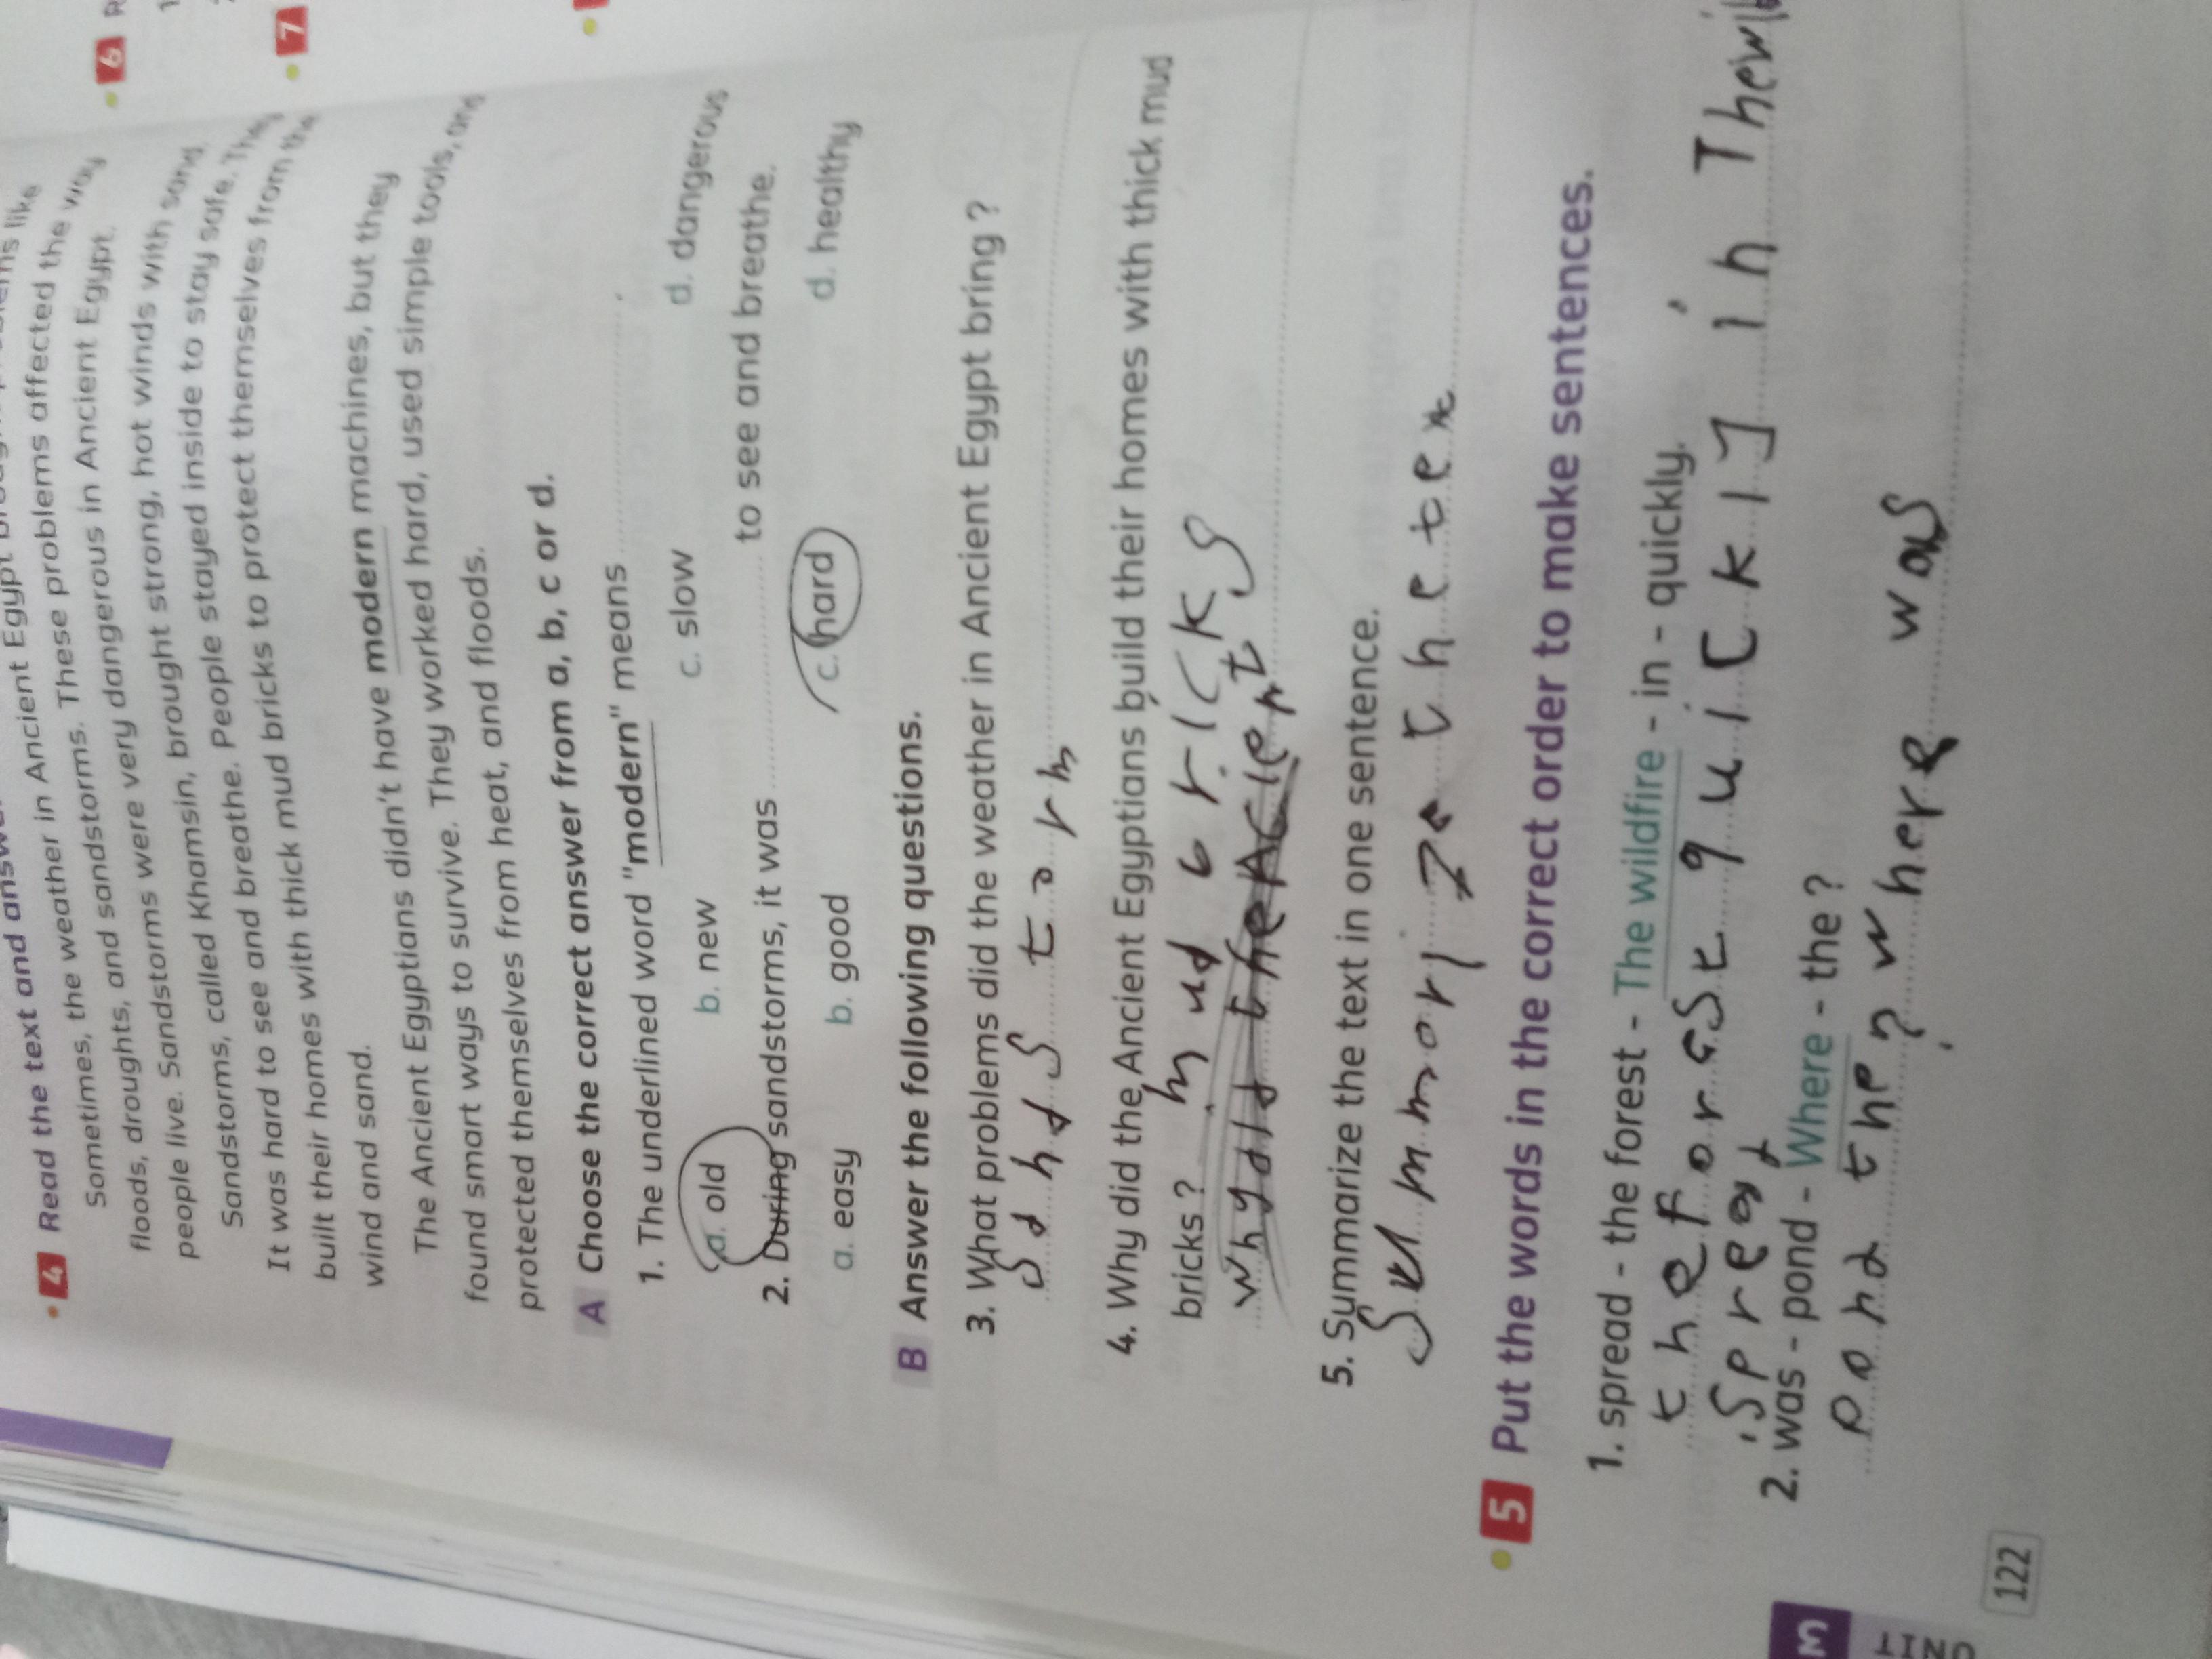 4 Read the text and
Sometimes, the weather in Ancient Egypt like
floods, droughts, and sandstorms. These problems affected the way
people live. Sandstorms were very dangerous in Ancient Egypt.
Sandstorms, called Khamsin, brought strong, hot winds with sand.
It was hard to see and breathe. People stayed inside to stay safe. They
built their homes with thick mud bricks to protect themselves from the
wind and sand.
The Ancient Egyptians didn't have modern machines, but they
found smart ways to survive. They worked hard, used simple tools, and
protected themselves from heat, and floods.
A Choose the correct answer from a, b, c or d.
1. The underlined word "modern" means
a. old b. new c. slow d. dangerous
2. During sandstorms, it was to see and breathe.
a. easy b. good c. hard d. healthy
B Answer the following questions.
3. What problems did the weather in Ancient Egypt bring ?
sand storm
4. Why did the Ancient Egyptians build their homes with thick mud
bricks ? mud bricks
5. Summarize the text in one sentence.
the tex
5 Put the words in the correct order to make sentences.
1. spread - the forest - The wildfire - in - quickly.
in
spread
2. was - pond - Where - the ?
pond the ? where was
122
6
7
3